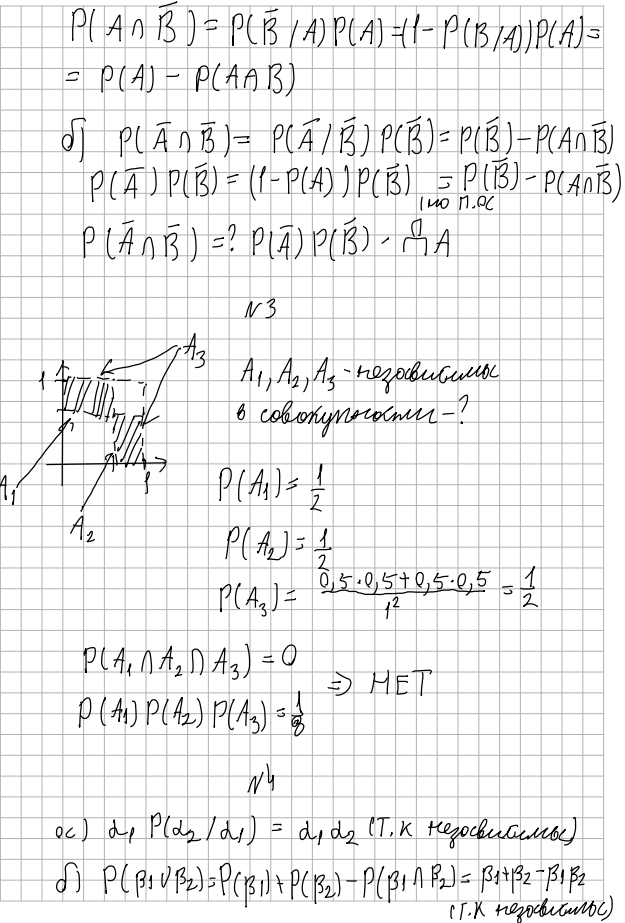 P(A∩B̄) = P(B̄/A)P(A) = (1-P(B/A))P(A) =
= P(A) - P(A∩B)
б) P(Ā∩B̄) = P(Ā/B̄)P(B̄) = P(B̄) - P(A∩B̄)
P(Ā)P(B̄) = (1-P(A))P(B̄) = P(B̄) - P(A∩B̄)
по п.а
P(Ā∩B̄) =? P(Ā)P(B̄) - ДА
N3
A₃
1
A₁, A₂, A₃ - независимы
в совокупности - ?
1
A₁
P(A₁) = 1/2
A₂
P(A₂) = 1/2
P(A₃) = (0,5·0,5+0,5·0,5)/1² = 1/2
P(A₁∩A₂∩A₃) = 0
=> НЕТ
P(A₁)P(A₂)P(A₃) = 1/8
N4
а) α₁ P(α₂/α₁) = α₁α₂ (т.к независимы)
б) P(β₁∪β₂) = P(β₁) + P(β₂) - P(β₁∩β₂) = β₁+β₂-β₁β₂
(т.к независимы)